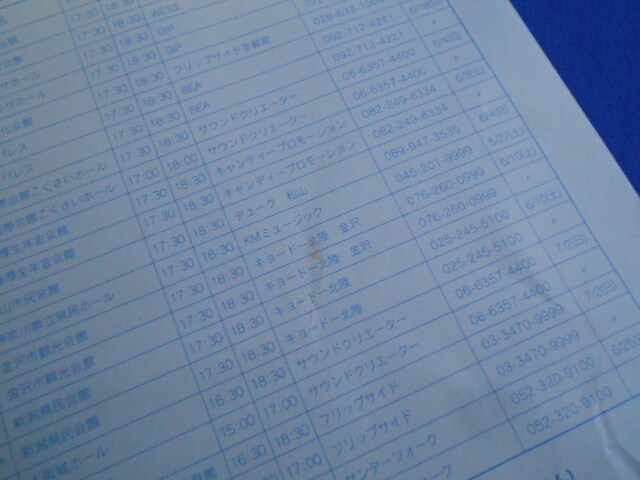 17:30 18:30 WESS
17:30 18:30 GIP
ホール 17:30 18:30 GIP
ホール 17:30 18:30 フリップサイド宇都宮
パレス 17:30 18:30 BEA 092-712-4221 6/18(日)
パレス 17:30 18:30 BEA 092-712-4221 〃
会館こくさいホール 17:30 18:30 サウンドクリエーター 06-6357-4400 6/4(日)
会館こくさいホール 17:00 18:00 サウンドクリエーター 06-6357-4400 〃
厚生年金会館 17:30 18:30 キャンディープロモーション 082-249-8334 6/3(土)
厚生年金会館 17:30 18:30 キャンディープロモーション 082-249-8334 〃
山市民会館 17:30 18:30 デューク 松山 089-947-3535 6/4(日)
奈川県立県民ホール 17:30 18:30 KMミュージック 045-201-9999 5/27(土)
金沢市観光会館 17:30 18:30 キョードー北陸 金沢 076-260-0999 6/10(土)
金沢市観光会館 17:30 18:30 キョードー北陸 金沢 076-260-0999 〃
新潟県民会館 17:30 18:30 キョードー北陸 025-245-5100 6/10(土)
新潟県民会館 17:30 18:30 キョードー北陸 025-245-5100 〃
大阪城ホール 16:30 18:30 サウンドクリエーター 06-6357-4400 7/2(日)
15:00 17:00 サウンドクリエーター 06-6357-4400 〃
16:30 18:30 フリップサイド 03-3470-9999 7/2(日)
17:00 フリップサイド 03-3470-9999 〃
サンデーフォーク 052-320-9100 6/25(
ォーク 052-320-9100